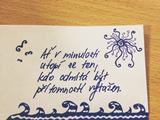 Ať v minulosti
utopí se ten,
kdo odmítá být
přítomností vytažen.